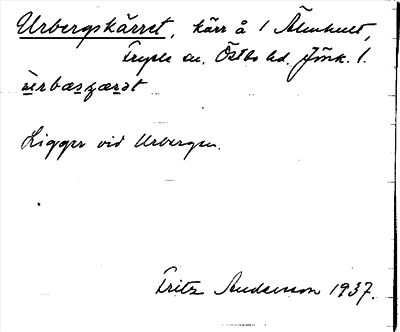 Urbergskärret, kärr å 1 Älmhult,
Tryde sn. Östbo hd. Jönk. l.
Ligger vid Urbergen.
Fritz Andersson 1937.